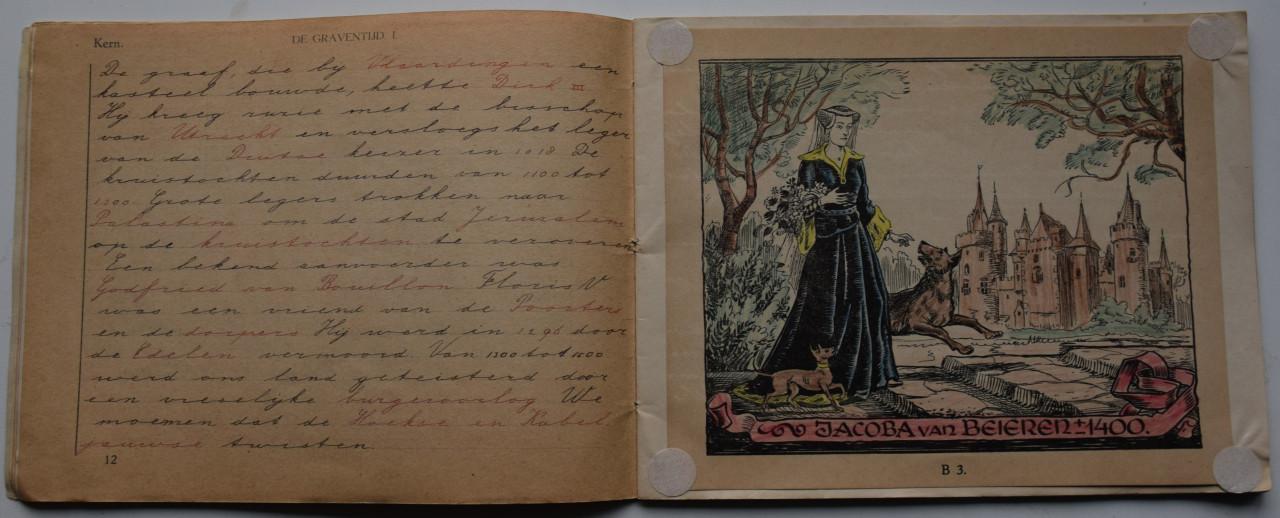 Kern.
DE GRAVENTIJD I.
De graaf, die bij Vlaardingen een
kasteel bouwde, heette Dirk III
Hij kreeg ruzie met de bisschop
van Utrecht en versloeg het leger
van de Duitse keizer in 1018 De
kruistochten duurden van 1100 tot
1300 Grote legers trokken naar
Palestina om de stad Jeruzalem
op de kruistochten te veroveren
Een bekend aanvoerder was
Godfried van Bouillon Floris V
was een vriend van de Poorters
en de dorpers Hij werd in 1296 door
de Edelen vermoord. Van 1300 tot 1500
werd ons land geteisterd door
een vreselijke burgeroorlog We
noemen dat de Hoekse en Kabel
jauwse twisten.
12
JACOBA van BEIEREN ± 1400.
B 3.